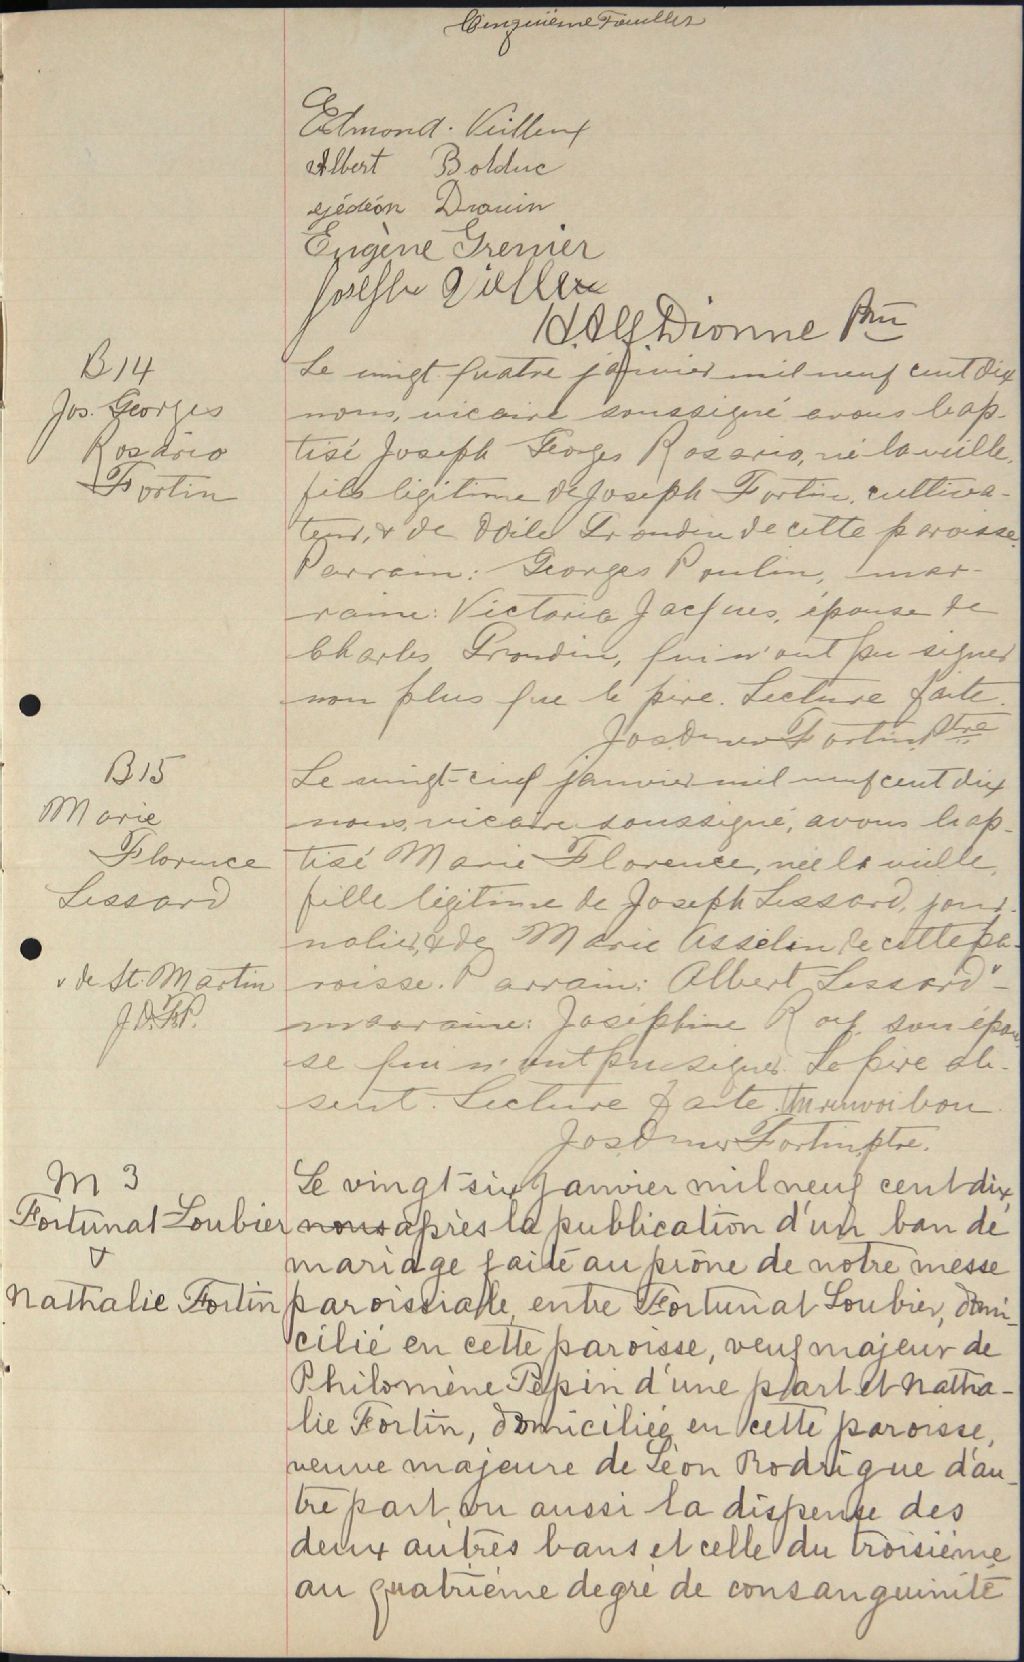 Cinquième Feuillet
Edmond. Veilleux
Albert Bolduc
Gédéon Drouin
Eugène Grenier
Joseph Veilleux
H. Alf. Dionne Ptre
B 14
Jos. Georges
Rosario
Fortin
Le vingt-quatre janvier mil neuf cent dix
nous, vicaire soussigné avons bap-
tisé Joseph Georges Rosario, né la veille,
fils légitime de Joseph Fortin, cultiva-
teur, & de Odile Grondin de cette paroisse.
Parrain: Georges Poulin, mar-
raine: Victoria Jacques, épouse de
Charles Grondin, qui n'ont pu signer
non plus que le père. Lecture faite.
Jos Omer Fortin, Ptre
B 15
Marie
Florence
Lessard
Le vingt-cinq janvier mil neuf cent dix
nous, vicaire soussigné, avons bap-
tisé Marie Florence, née la veille,
fille légitime de Joseph Lessard, jour-
nalier, & de Marie Asselin de cette pa-
roisse. Parrain: Albert Lessard v -
v de St. Martin
marraine: Joséphine Roy, son épou-
se qui n'ont pu signer. Le père ab-
sent. Lecture faite. Un renvoi bon.
Jos Omer Fortin, ptre.
M 3
Fortunat Loubier
&
Nathalie Fortin
Le vingt-six janvier mil neuf cent dix,
nous après la publication d'un ban de
mariage faite au prône de notre messe
paroissiale, entre Fortunat Loubier, domi-
cilié en cette paroisse, veuf majeur de
Philomène Pépin d'une part et Natha-
lie Fortin, domiciliée en cette paroisse,
veuve majeure de Léon Rodrigue d'au-
tre part, vu aussi la dispense des
deux autres bans et celle du troisième
au quatrième degré de consanguinité